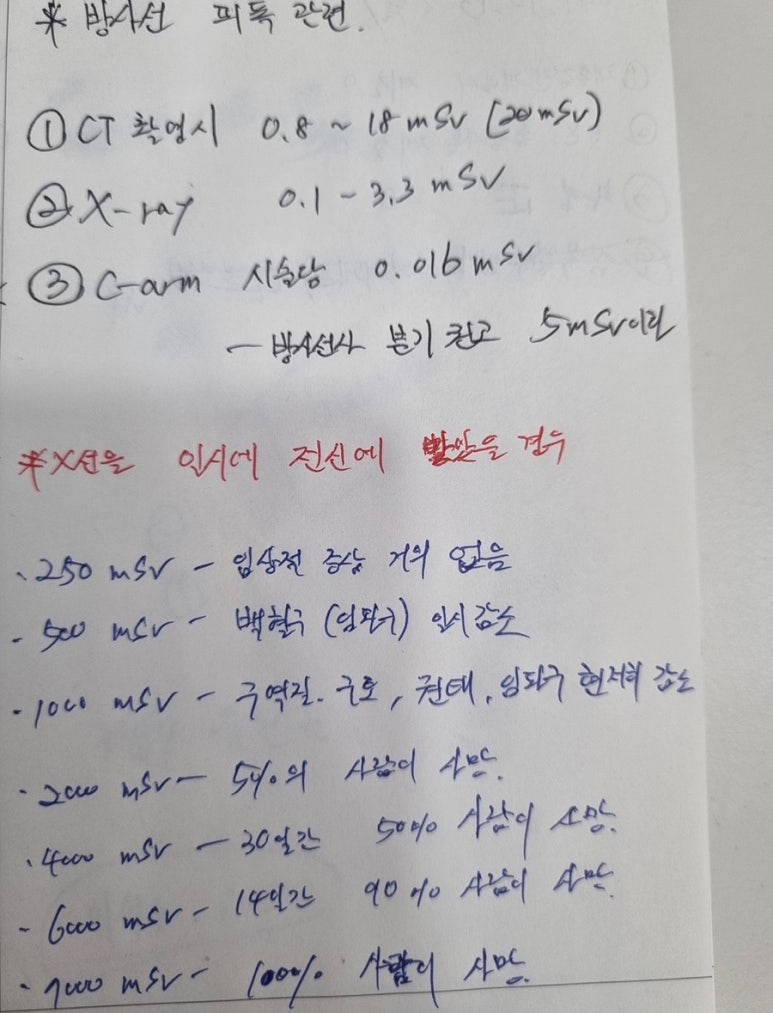 * 방사선 피폭 관련.
① CT 촬영시 0.8 ~ 18 mSv (20mSv)
② X-ray 0.1 - 3.3 mSv
③ C-arm 시술당 0.016 mSv
- 방사선사 분기 권고 5mSv이하
* X선을 일시에 전신에 받았을 경우
· 250 mSv - 임상적 증상 거의 없음
- 500 mSv - 백혈구 (임파구) 일시 감소
· 1000 mSv - 구역질. 구토, 권태, 임파구 현저히 감소
· 2000 mSv - 5%의 사람이 사망.
· 4000 mSv - 30일간 50% 사람이 사망.
- 6000 mSv - 14일간 90% 사람이 사망.
· 7000 mSv - 100% 사람이 사망.